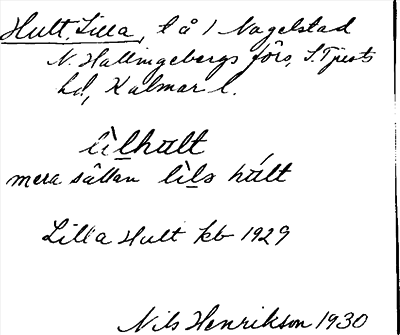 Hult, Lilla, l å / Nagelstad
N. Hallingebergs förs, S. Tjusts
hd, Kalmar l.
lìlhult
mera sällan lìlo húlt
Lilla Hult kb 1929
Nils Henrikson 1930